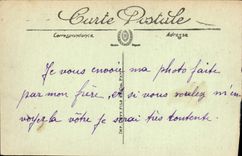 Carte Postale
Correspondance
Adresse
Je vous envoie ma photo faite
par mon frère, et si vous voulez m'en
voyer la vôtre je serai très contente.